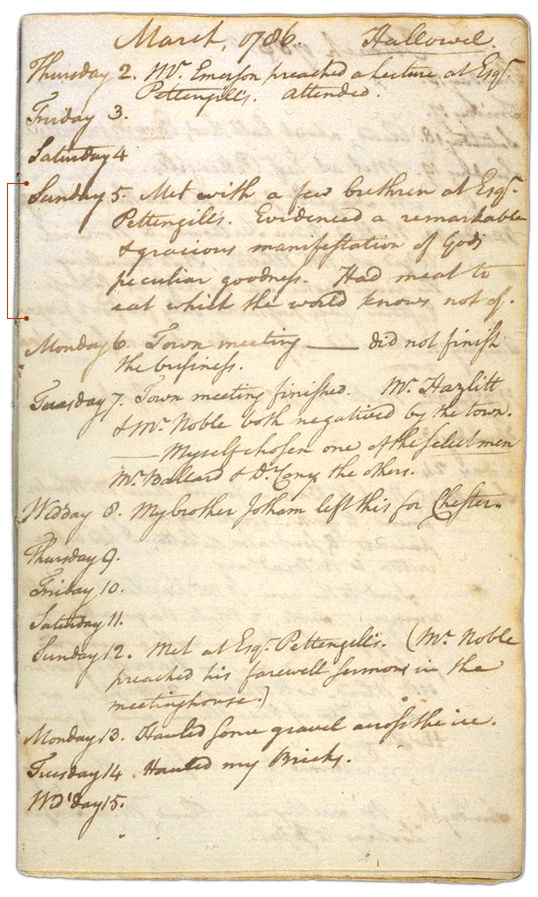 March, 1786. Hallowel.
Thursday 2. Mr. Emerson preached a lecture at Esqr.
Pettengill's. attended.
Friday 3.
Saturday 4
Sunday 5. Met with a few brethren at Esqr.
Pettengill's. Evidenced a remarkable
& gracious manifestation of Gods
peculiar goodness. Had meat to
eat which the world knows not of.
Monday 6. Town meeting —— did not finish
the business.
Tuesday 7. Town meeting finished. Mr. Hazlitt
& Mr. Noble both negatived by the town.
— Myself chosen one of the Selectmen
Mr. Ballard & Dr. Cony the others.
Wedday 8. My brother Jotham left this for Chester.
Thursday 9.
Friday 10.
Saturday 11.
Sunday 12. Met at Esqr. Pettengill's. (Mr. Noble
preached his farewell sermons in the
meetinghouse.)
Monday 13. Hauled some gravel across the ice.
Tuesday 14. Hauled my Bricks.
Wd'day 15.